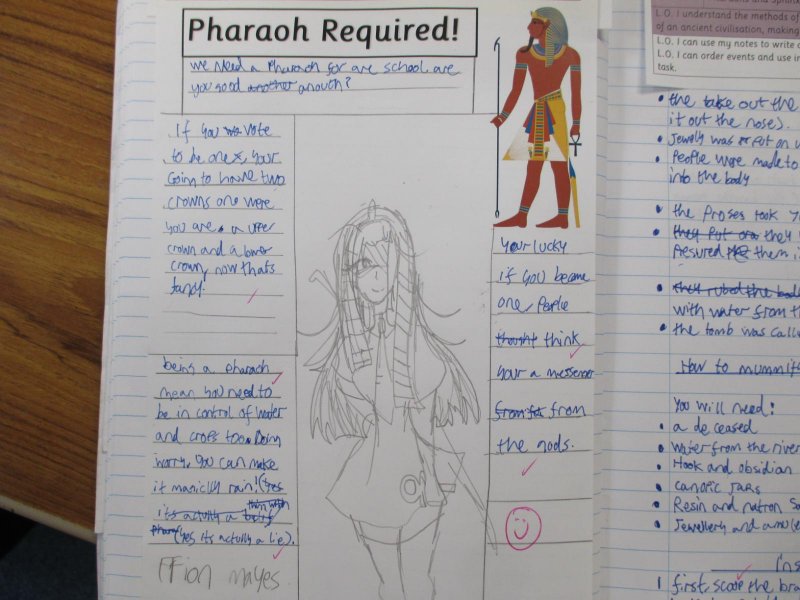 Pharaoh Required!
we need a Pharaoh for are school are
you good another anouth?
If you wo vote
to be one, your
Going to have two
crowns one were
you are a upper
crown and a lower
crown, now thats
fancy!
being a pharaoh
mean you need to
be in control of water
and crops too. Doin
worry, you can make
it magiclly rain! (yes
its actully a
(yes, its actully a lie).
Ffion mayes
Your lucky
if you become
one, People
thought think
your a messenger
from
the gods.
L.O. I understand the methods of
of an ancient civilisation, making
L.O. I can use my notes to write
L.O. I can order events and use
task.
the take out the
it out the nose).
Jewelly was put on
People were made to
into the body
the Proses took
they put they
Pesured them
they rubed the
with water from th
the tomb was calle
How to mummif
You will need:
a deceased
water from the river
Hook and obsidian
canopic jars
Resin and natron
Jewellery and amule
Ins
1 first, the bra